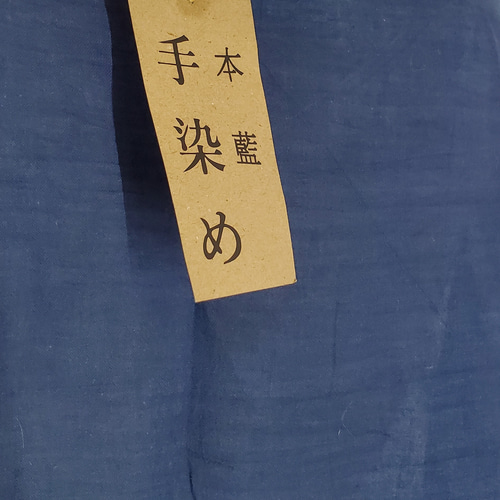 本藍
手染め